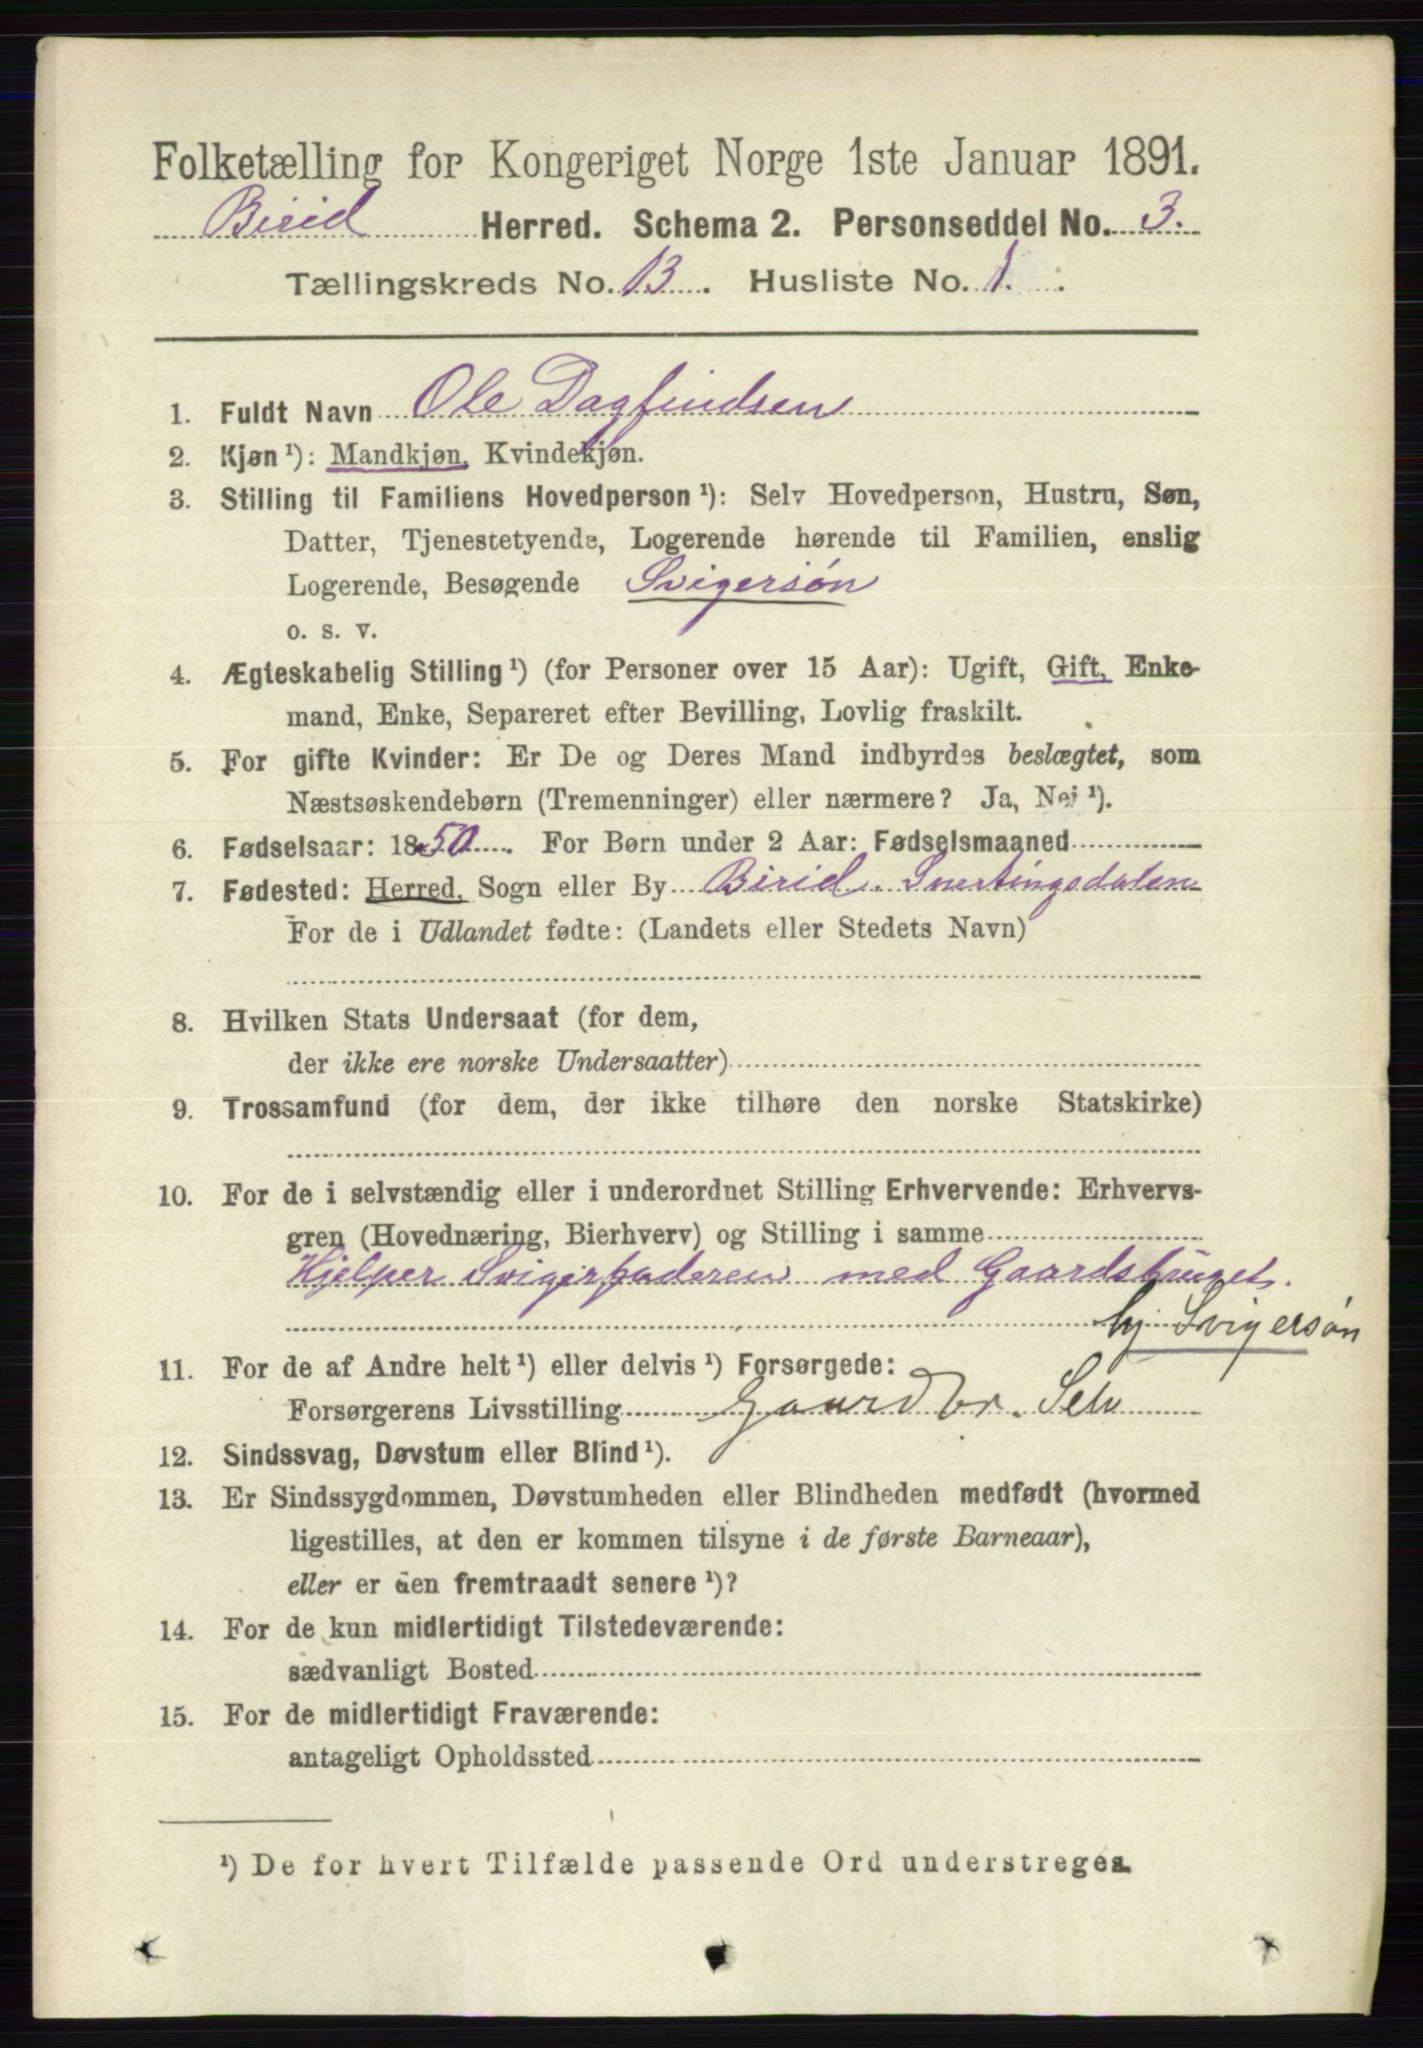 Folketælling for Kongeriget Norge 1ste Januar 1891.
Birid Herred. Schema 2. Personseddel No. 3.
Tællingskreds No. 13. Husliste No. 1.
1. Fuldt Navn Ole Dagfindsen
2. Kjøn ¹): Mandkjøn, Kvindekjøn.
3. Stilling til Familiens Hovedperson ¹): Selv Hovedperson, Hustru, Søn,
Datter, Tjenestetyende, Logerende hørende til Familien, enslig
Logerende, Besøgende Svigersøn
o. s. v.
4. Ægteskabelig Stilling ¹) (for Personer over 15 Aar): Ugift, Gift, Enke-
mand, Enke, Separeret efter Bevilling, Lovlig fraskilt.
5. For gifte Kvinder: Er De og Deres Mand indbyrdes beslægtet, som
Næstsøskendebørn (Tremenninger) eller nærmere? Ja, Nei ¹).
6. Fødselsaar: 1850. For Børn under 2 Aar: Fødselsmaaned
7. Fødested: Herred, Sogn eller By Birid. Snertingsdalen
For de i Udlandet fødte: (Landets eller Stedets Navn)
8. Hvilken Stats Undersaat (for dem,
der ikke ere norske Undersaatter)
9. Trossamfund (for dem, der ikke tilhøre den norske Statskirke)
10. For de i selvstændig eller i underordnet Stilling Erhvervende: Erhvervs-
gren (Hovednæring, Bierhverv) og Stilling i samme
Hjelper Svigerfaderen med Gaardsbruget.
hj Svigersøn
11. For de af Andre helt ¹) eller delvis ¹) Forsørgede:
Forsørgerens Livsstilling Gaardbr. Selv
12. Sindssvag, Døvstum eller Blind ¹).
13. Er Sindssygdommen, Døvstumheden eller Blindheden medfødt (hvormed
ligestilles, at den er kommen tilsyne i de første Barneaar),
eller er den fremtraadt senere ¹)?
14. For de kun midlertidigt Tilstedeværende:
sædvanligt Bosted
15. For de midlertidigt Fraværende:
antageligt Opholdssted
¹) De for hvert Tilfælde passende Ord understreges.